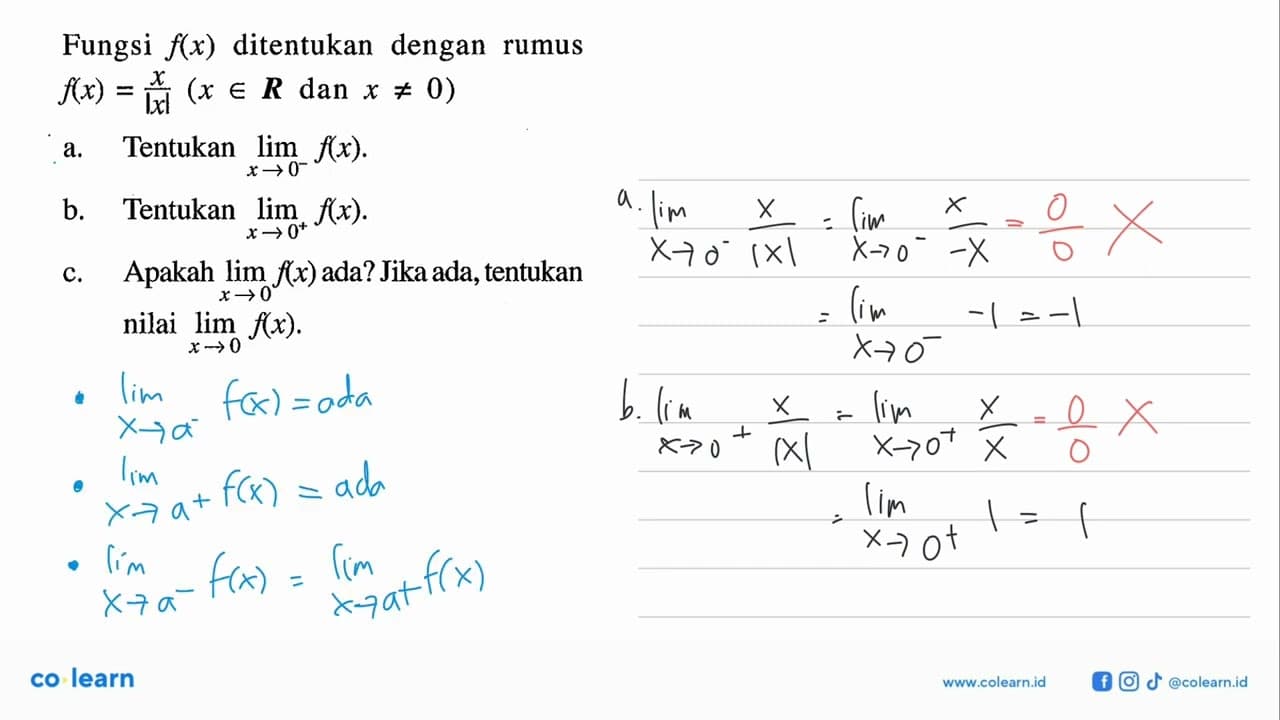 Fungsi f(x) ditentukan dengan rumus
f(x) = x/|x| (x ∈ R dan x ≠ 0)
a. Tentukan lim x→0⁻ f(x).
b. Tentukan lim x→0⁺ f(x).
c. Apakah lim x→0 f(x) ada? Jika ada, tentukan
nilai lim x→0 f(x).
• lim x→a⁻ f(x) = ada
• lim x→a⁺ f(x) = ada
• lim x→a⁻ f(x) = lim x→a⁺ f(x)
a. lim x→0⁻ x/|x| = lim x→0⁻ x/-x = 0/0 X
= lim x→0⁻ -1 = -1
b. lim x→0⁺ x/|x| = lim x→0⁺ x/x = 0/0 X
= lim x→0⁺ 1 = 1
co learn
www.colearn.id
@colearn.id